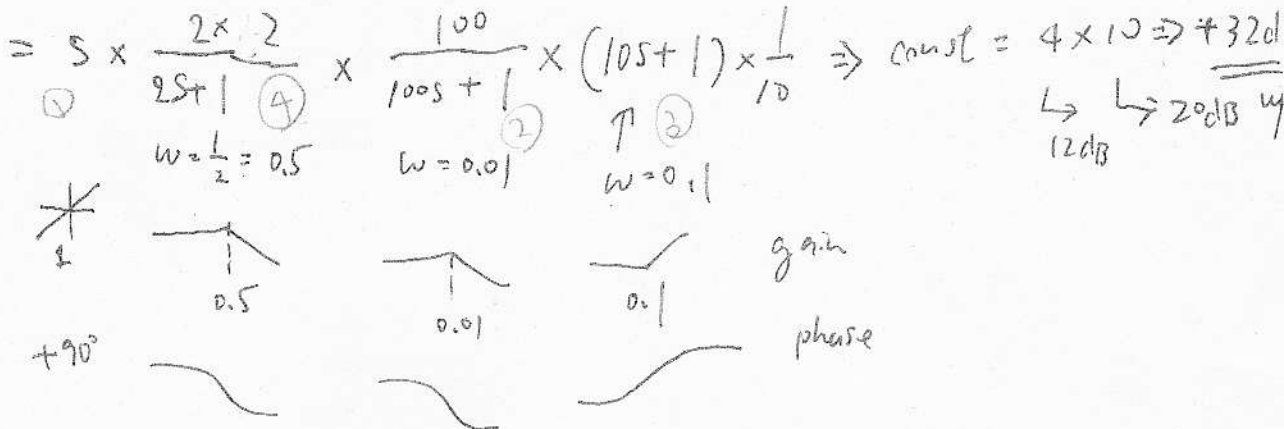 = S × 2×2 / 2S+1 × 100 / 100S+1 × (10S+1) × 1/10 ⇒ const = 4×10 ⇒ +32d
① ④ ② ↑ ③ ↳ 12dB ↳ 20dB up
w = 1/2 = 0.5 w = 0.01 w = 0.1
1 0.5 0.01 0.1 gain
+90° phase